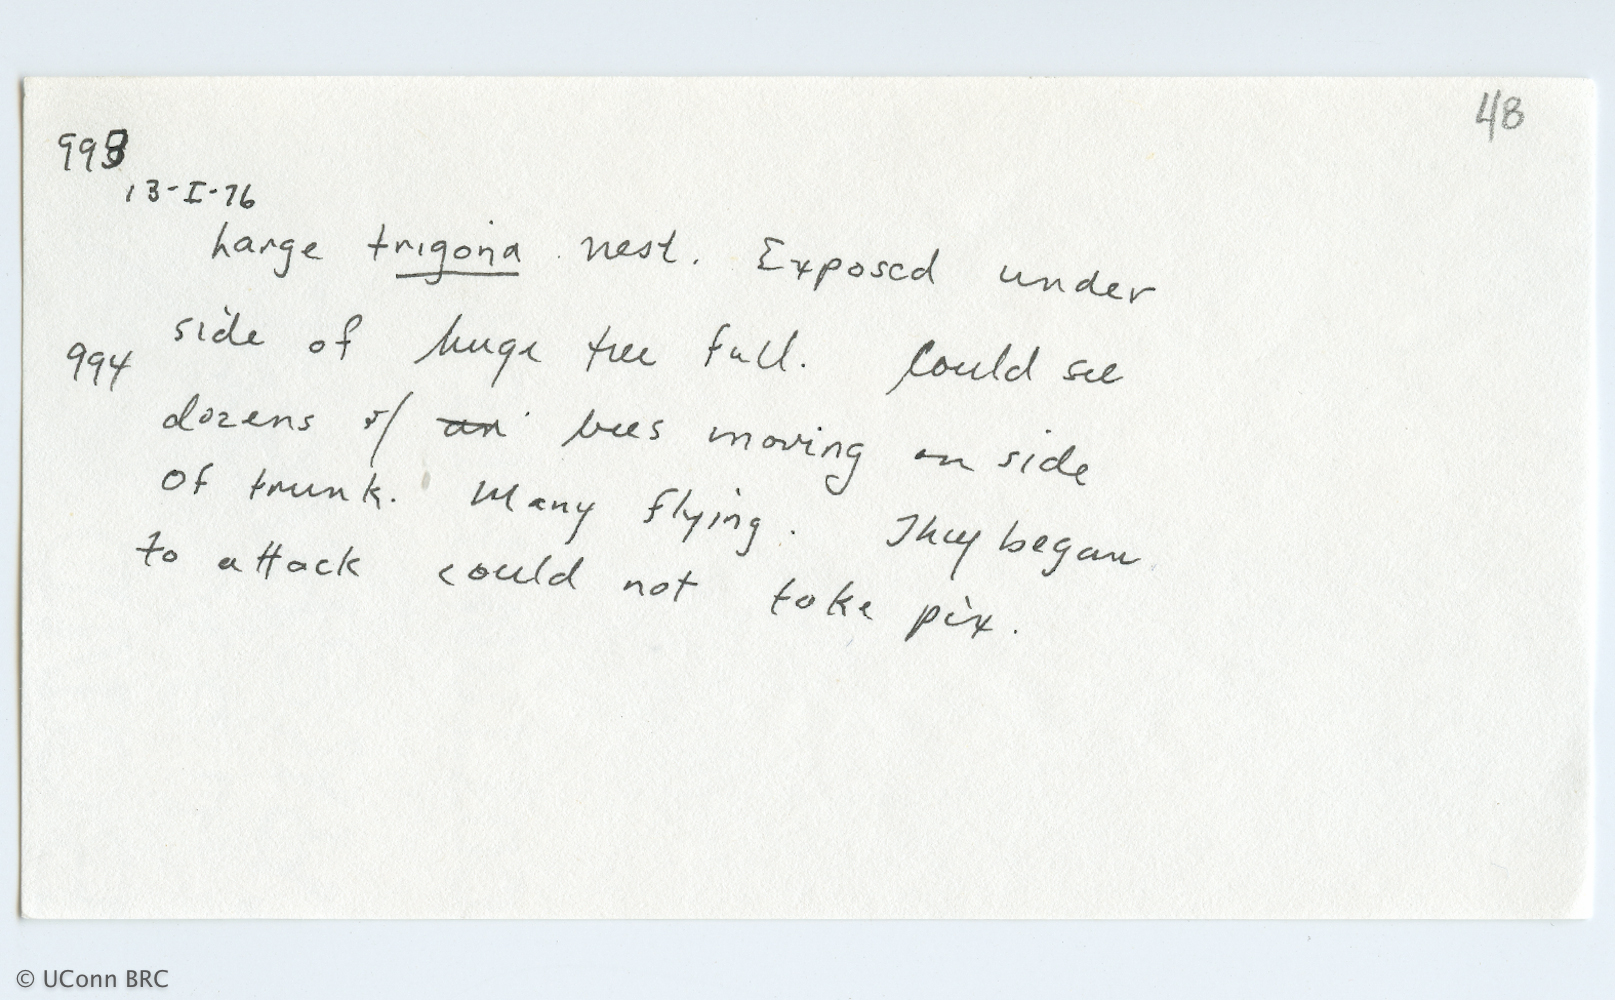 48
993
13-I-76
Large trigona nest. Exposed under
side of huge tree fall. Could see
994
dozens of an bees moving on side
of trunk. Many flying. They began
to attack could not take pix.
© UConn BRC